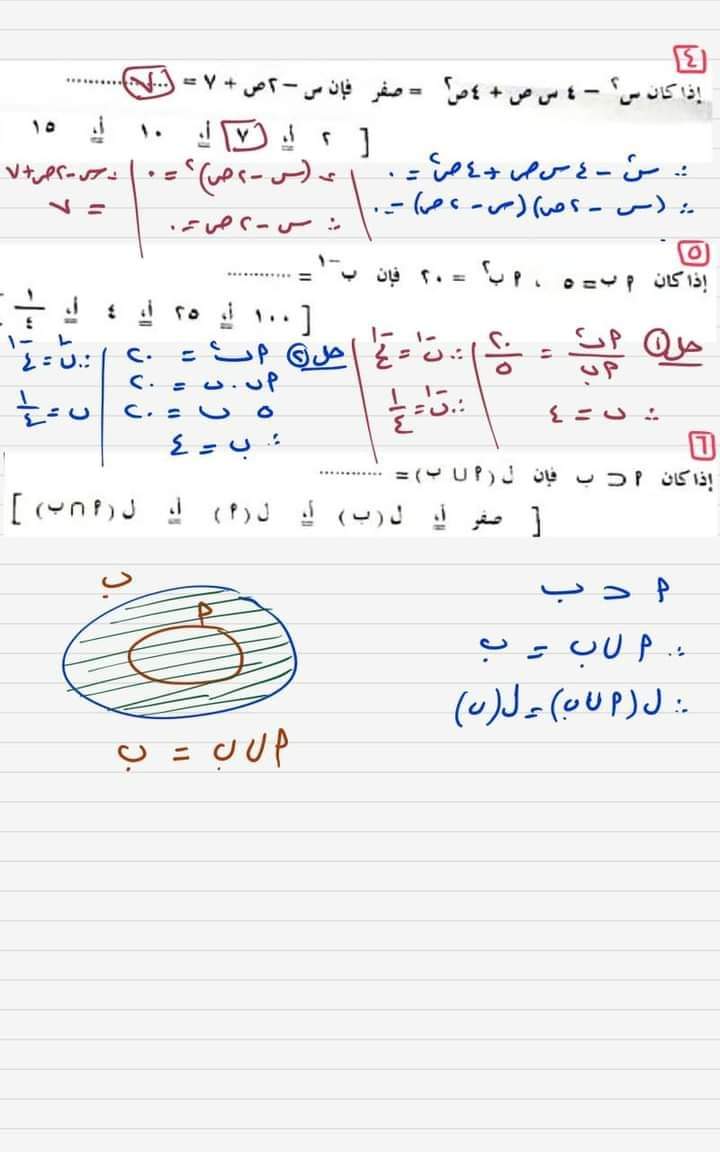 ٤
إذا كان س٢ – ٤ س ص + ٤ص٢ = صفر فإن س – ٢ص + ٧ = ...٧...
[ ٢ أ، ٧ أ، ١٠ أ، ١٥
∴ س٢ – ٤ س ص + ٤ص٢ = ٠
∴ (س – ٢ص)(س – ٢ص) = ٠
∴ (س – ٢ص)٢ = ٠
∴ س – ٢ص = ٠
∴ س – ٢ص + ٧
= ٧
٥
إذا كان ٢ ب = ٥ ، ٢ ب٢ = ٢٠ فإن ب–١ = ............
[ ١٠٠ أ، ٢٥ أ، ٤ أ، ١/٤
حل ① ٢ب٢/٢ب = ٢٠/٥
∴ ب = ٤
∴ ب–١ = ٤–١
∴ ب–١ = ١/٤
حل ② ٢ب٢ = ٢٠
٢ب . ب = ٢٠
٥ ب = ٢٠
∴ ب = ٤
∴ ب–١ = ٤–١
ب = ١/٤
٦
إذا كان ٢ ⊂ ب فإن ل(٢ ∪ ب) = ............
[ صفر أ، ل(ب) أ، ل(٢) أ، ل(٢ ∩ ب) ]
٢ ⊂ ب
∴ ٢ ∪ ب = ب
∴ ل(٢ ∪ ب) = ل(ب)
ب
٢
٢ ∪ ب = ب